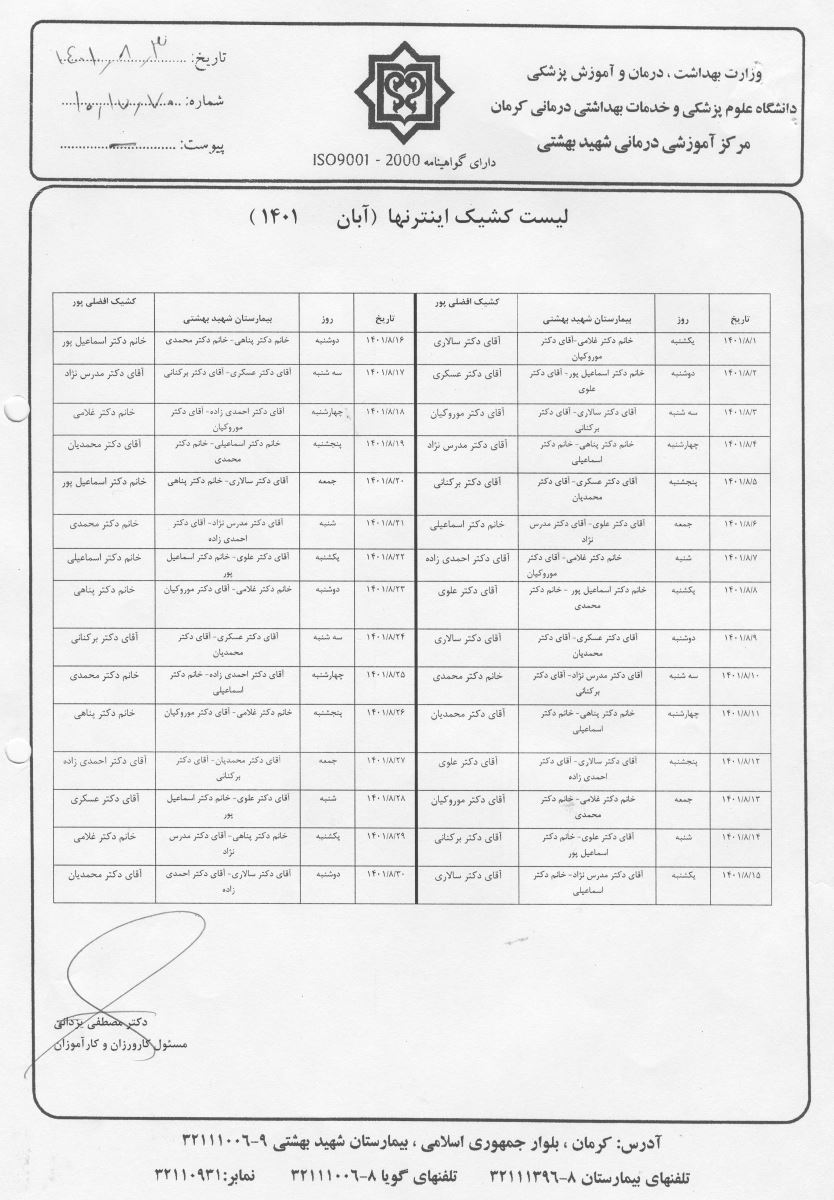 وزارت بهداشت ، درمان و آموزش پزشکی
دانشگاه علوم پزشکی و خدمات بهداشتی درمانی کرمان
مرکز آموزشی درمانی شهید بهشتی
دارای گواهینامه ISO9001 - 2000
تاریخ: ۱۴۰۱/۸/۳
شماره:
پیوست: —
لیست کشیک اینترنها (آبان ۱۴۰۱)
تاریخ روز بیمارستان شهید بهشتی کشیک افضلی پور تاریخ روز بیمارستان شهید بهشتی کشیک افضلی پور
۱۴۰۱/۸/۱ یکشنبه خانم دکتر غلامی-آقای دکتر موروکیان آقای دکتر سالاری ۱۴۰۱/۸/۱۶ دوشنبه خانم دکتر پناهی- خانم دکتر محمدی خانم دکتر اسماعیل پور
۱۴۰۱/۸/۲ دوشنبه خانم دکتر اسماعیل پور- آقای دکتر علوی آقای دکتر عسکری ۱۴۰۱/۸/۱۷ سه شنبه آقای دکتر عسکری- آقای دکتر برکتانی آقای دکتر مدرس نژاد
۱۴۰۱/۸/۳ سه شنبه آقای دکتر سالاری- آقای دکتر برکتانی آقای دکتر موروکیان ۱۴۰۱/۸/۱۸ چهارشنبه آقای دکتر احمدی زاده- آقای دکتر موروکیان خانم دکتر غلامی
۱۴۰۱/۸/۴ چهارشنبه خانم دکتر پناهی- خانم دکتر اسماعیلی آقای دکتر مدرس نژاد ۱۴۰۱/۸/۱۹ پنجشنبه خانم دکتر اسماعیلی- خانم دکتر محمدی آقای دکتر محمدیان
۱۴۰۱/۸/۵ پنجشنبه آقای دکتر عسکری- آقای دکتر محمدیان آقای دکتر برکتانی ۱۴۰۱/۸/۲۰ جمعه آقای دکتر سالاری- خانم دکتر پناهی خانم دکتر اسماعیل پور
۱۴۰۱/۸/۶ جمعه آقای دکتر علوی- آقای دکتر مدرس نژاد خانم دکتر اسماعیلی ۱۴۰۱/۸/۲۱ شنبه آقای دکتر مدرس نژاد- آقای دکتر احمدی زاده خانم دکتر محمدی
۱۴۰۱/۸/۷ شنبه خانم دکتر غلامی- آقای دکتر موروکیان آقای دکتر احمدی زاده ۱۴۰۱/۸/۲۲ یکشنبه آقای دکتر علوی- خانم دکتر اسماعیل پور خانم دکتر اسماعیلی
۱۴۰۱/۸/۸ یکشنبه خانم دکتر اسماعیل پور - خانم دکتر محمدی آقای دکتر علوی ۱۴۰۱/۸/۲۳ دوشنبه خانم دکتر غلامی- آقای دکتر موروکیان خانم دکتر پناهی
۱۴۰۱/۸/۹ دوشنبه آقای دکتر عسکری- آقای دکتر محمدیان آقای دکتر سالاری ۱۴۰۱/۸/۲۴ سه شنبه آقای دکتر عسکری- آقای دکتر محمدیان آقای دکتر برکتانی
۱۴۰۱/۸/۱۰ سه شنبه آقای دکتر مدرس نژاد- آقای دکتر برکتانی خانم دکتر محمدی ۱۴۰۱/۸/۲۵ چهارشنبه آقای دکتر احمدی زاده- خانم دکتر اسماعیلی خانم دکتر محمدی
۱۴۰۱/۸/۱۱ چهارشنبه خانم دکتر پناهی- خانم دکتر اسماعیلی آقای دکتر محمدیان ۱۴۰۱/۸/۲۶ پنجشنبه خانم دکتر غلامی- آقای دکتر موروکیان خانم دکتر پناهی
۱۴۰۱/۸/۱۲ پنجشنبه آقای دکتر سالاری- آقای دکتر احمدی زاده آقای دکتر علوی ۱۴۰۱/۸/۲۷ جمعه آقای دکتر محمدیان- آقای دکتر برکتانی آقای دکتر احمدی زاده
۱۴۰۱/۸/۱۳ جمعه خانم دکتر غلامی- خانم دکتر محمدی آقای دکتر موروکیان ۱۴۰۱/۸/۲۸ شنبه آقای دکتر علوی- خانم دکتر اسماعیل پور آقای دکتر عسکری
۱۴۰۱/۸/۱۴ شنبه آقای دکتر علوی- خانم دکتر اسماعیل پور آقای دکتر برکتانی ۱۴۰۱/۸/۲۹ یکشنبه خانم دکتر پناهی- آقای دکتر مدرس نژاد خانم دکتر غلامی
۱۴۰۱/۸/۱۵ یکشنبه آقای دکتر مدرس نژاد- خانم دکتر اسماعیلی آقای دکتر سالاری ۱۴۰۱/۸/۳۰ دوشنبه آقای دکتر سالاری- آقای دکتر احمدی زاده آقای دکتر محمدیان
دکتر مصطفی یزدانی
مسئول کارورزان و کارآموزان
آدرس: کرمان ، بلوار جمهوری اسلامی ، بیمارستان شهید بهشتی ۹-۳۲۱۱۱۰۰۶
تلفنهای بیمارستان ۸-۳۲۱۱۱۳۹۶ تلفنهای گویا ۸-۳۲۱۱۱۰۰۶ نمابر:۳۲۱۱۰۹۳۱